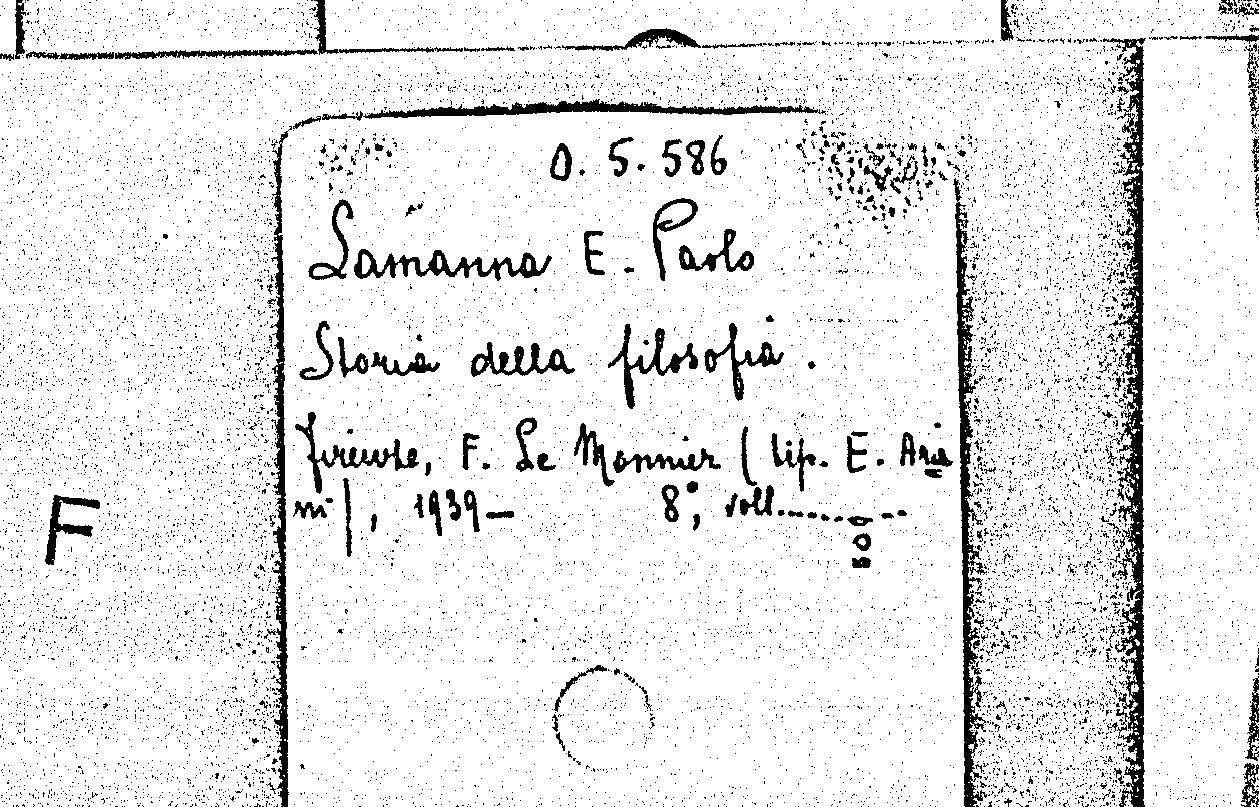 O. 5. 586
Lamanna E. Paolo
Storia della filosofia.
Firenze, F. Le Monnier (tip. E. Aria
ni), 1939– 8°, voll..........
F